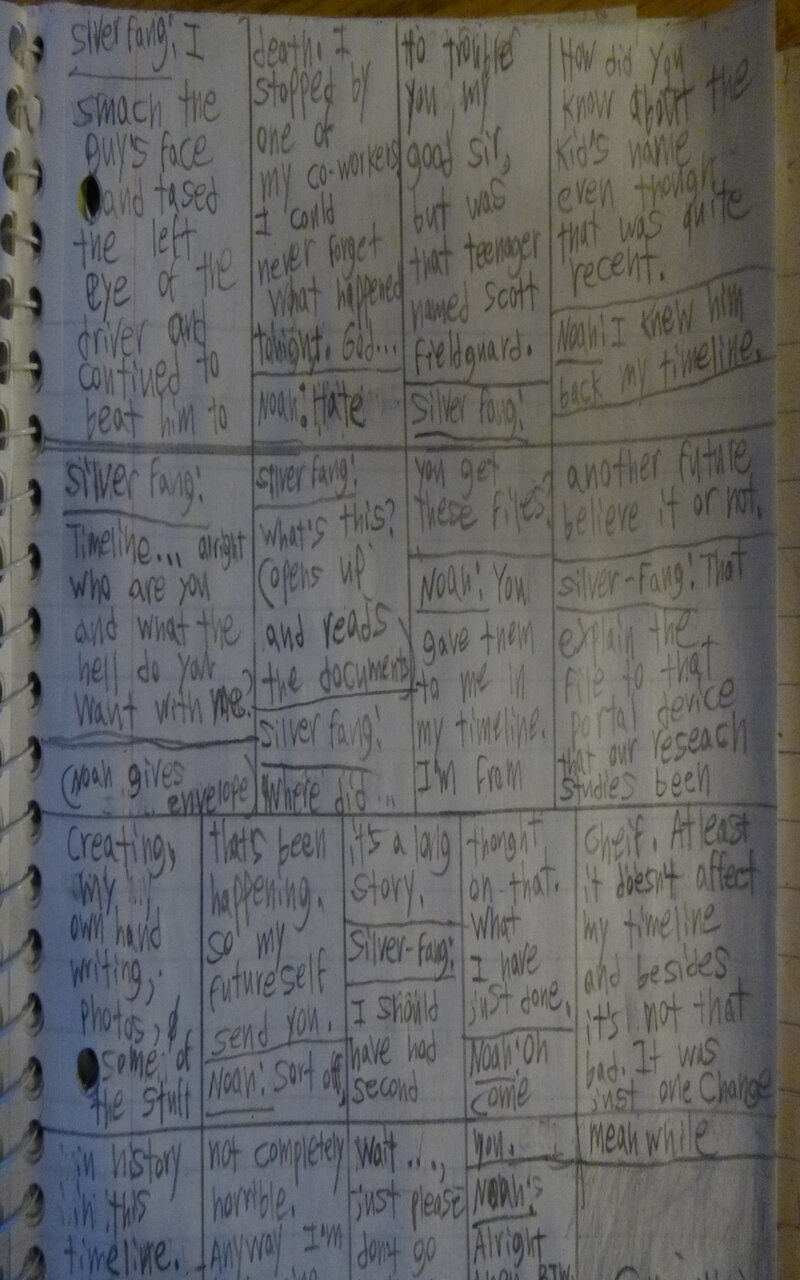 Silver fang: I
smach the
guy's face
and tased
the left
eye of the
driver and
contined to
beat him to
death. I
stopped by
one of
my co-workers
I could
never forget
what happened
tonight. God...
Noah: Hate
to trouble
you, my
good sir,
but was
that teenager
named Scott
Fieldguard.
Silver fang:
How did you
know about the
kid's name
even though
that was quite
recent.
Noah: I knew him
back my timeline.
Silver fang:
Timeline... alright
who are you
and what the
hell do you
want with me?
(Noah gives
envelope)
Silver fang:
What's this?
(opens up
and reads
the documents)
Silver fang:
Where did...
you get
these files?
Noah: You
gave them
to me in
my timeline.
I'm from
another future
believe it or not.
Silver-Fang: That
explain the
file to that
portal device
that our reseach
studies been
Creating,
my
own hand
writing,
photos, &
some of
the stuff
that's been
happening.
So my
future self
send you.
Noah: Sort off,
it's a long
story.
Silver-Fang:
I should
have had
second
thought
on that.
What
I have
just done.
Noah: Oh
come
Cheif. Atleast
it doesn't affect
my timeline
and besides
it's not that
bad. It was
just one Change
in history
in this
timeline.
not completely
horrible.
Anyway I'm
wait...,
just please
don't go
you.
Noah:
Alright
BTW
meanwhile